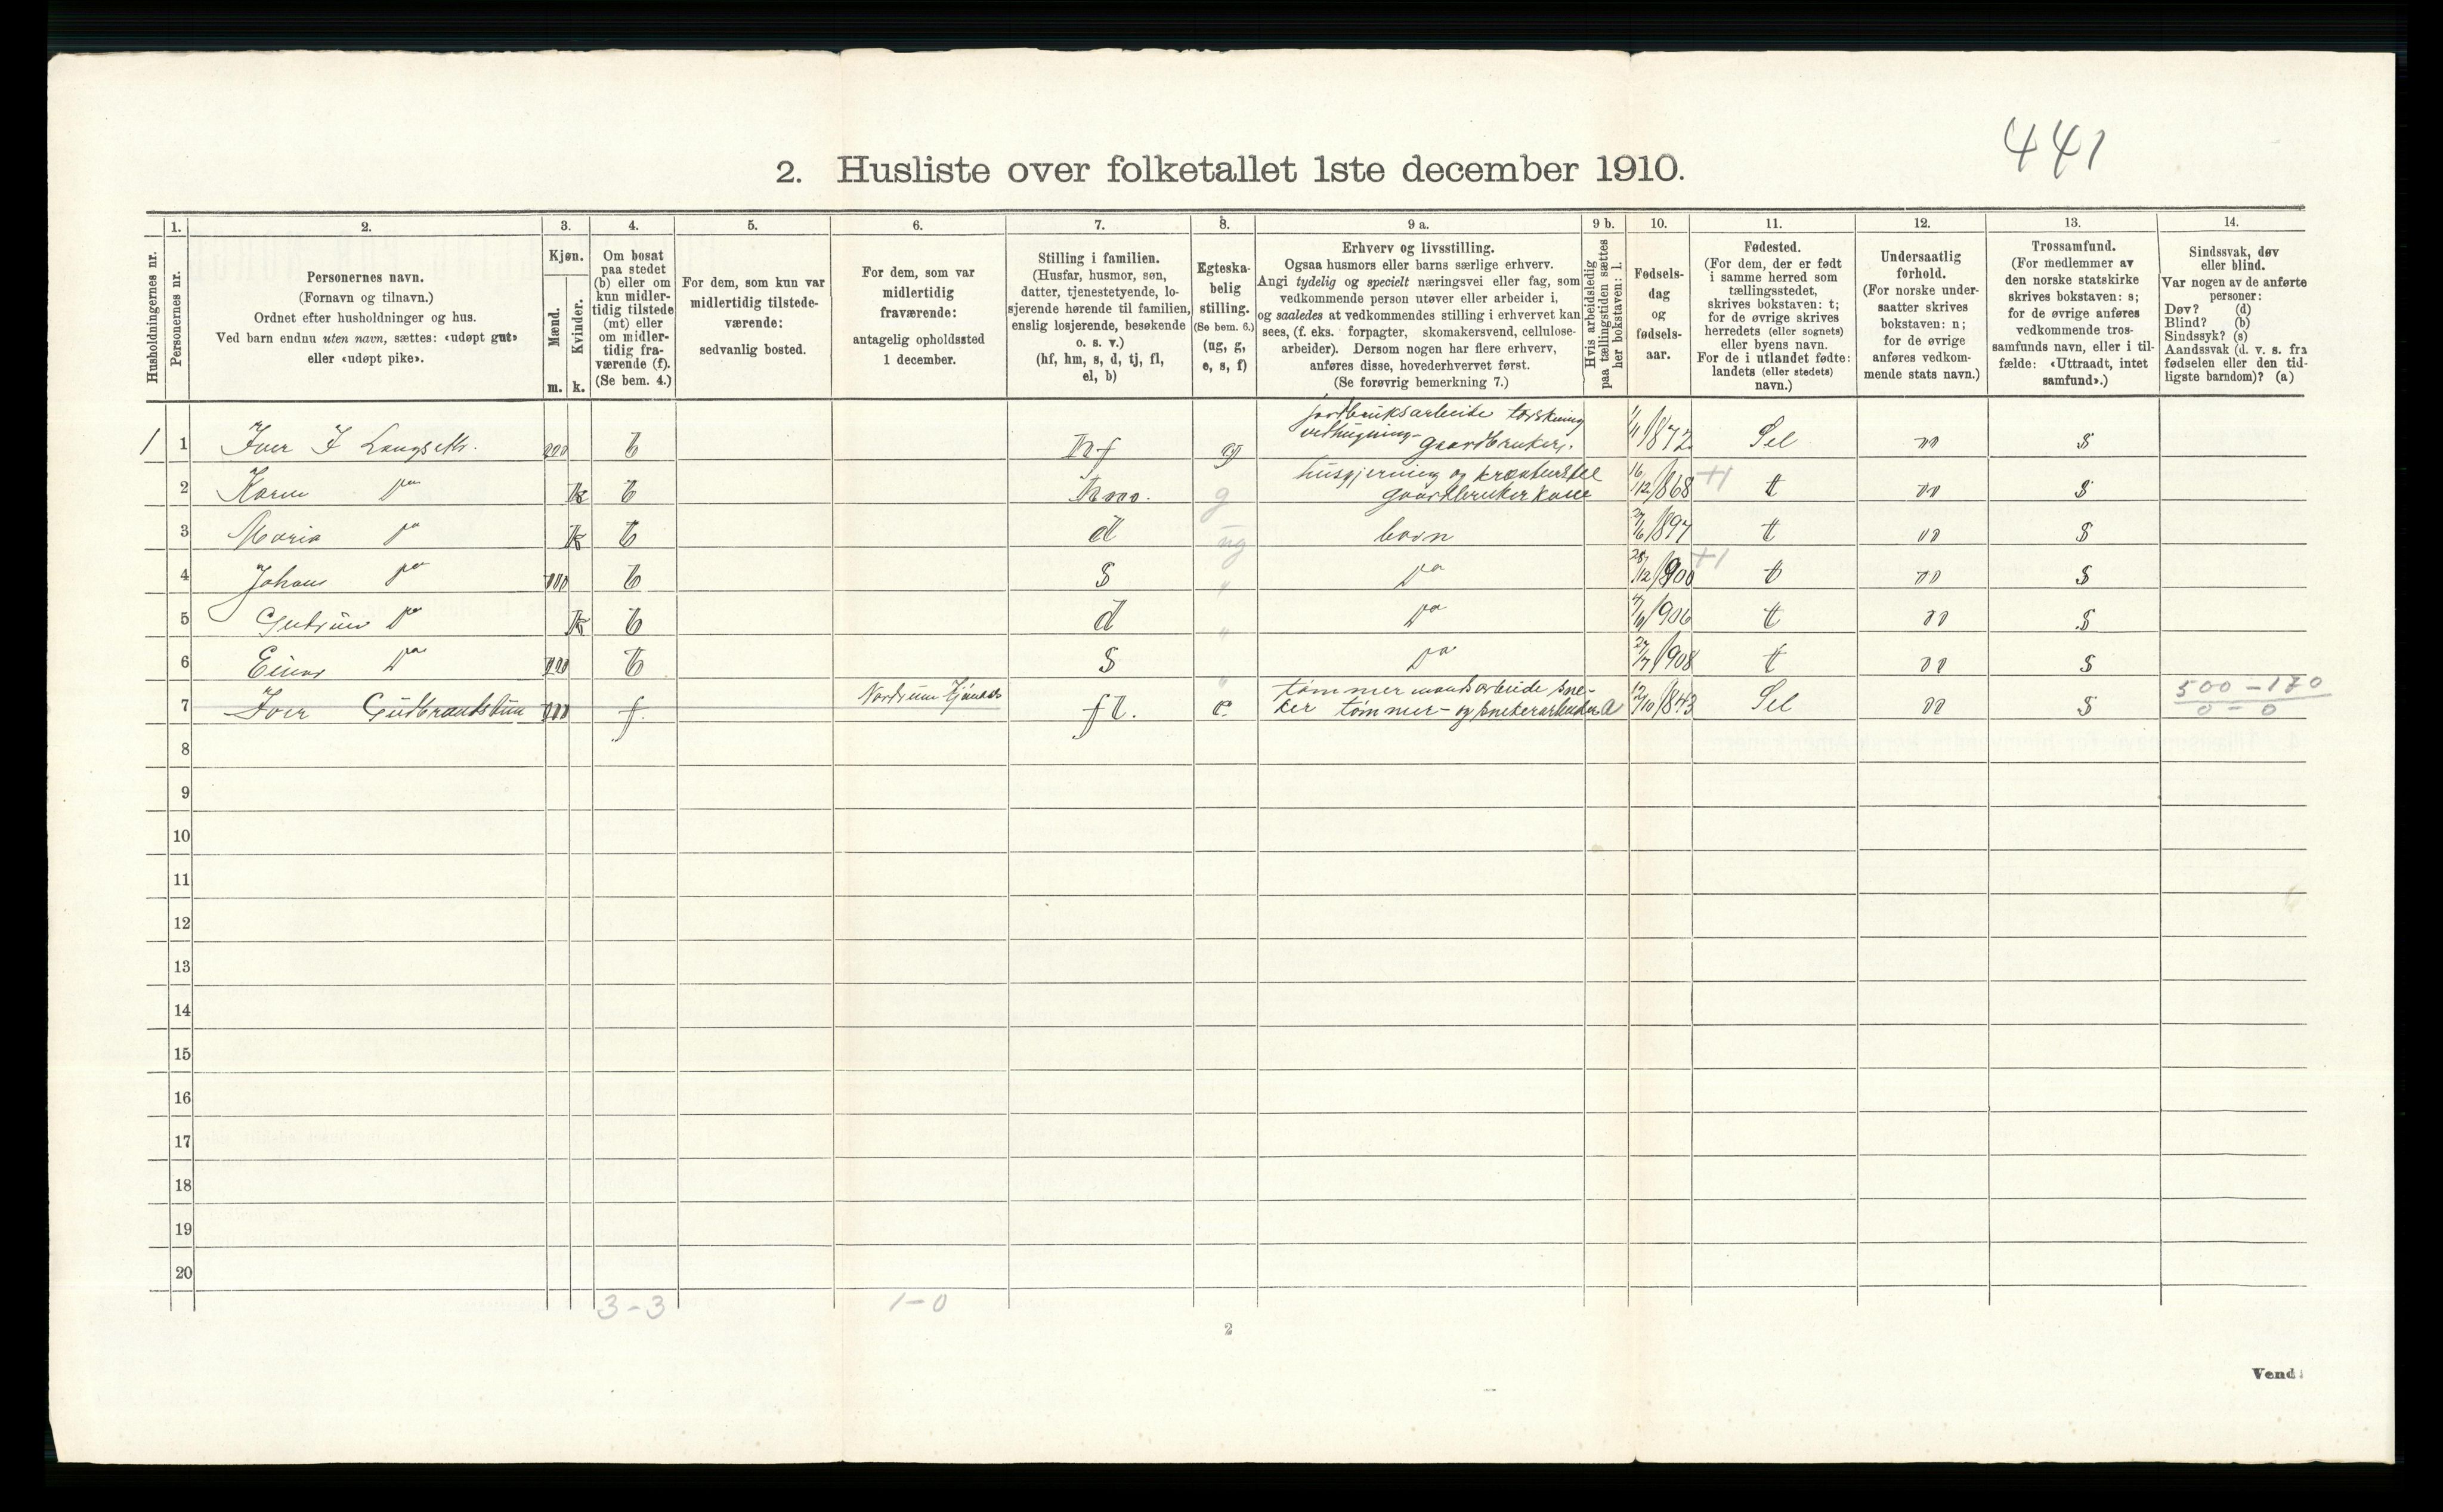 441
2. Husliste over folketallet 1ste december 1910.
Husholdningernes nr.
1.
Personernes nr.
2.
Personernes navn.
(Fornavn og tilnavn.)
Ordnet efter husholdninger og hus.
Ved barn endnu uten navn, sættes: «udøpt gut»
eller «udøpt pike».
3.
Kjøn.
Mænd.
Kvinder.
m. k.
4.
Om bosat
paa stedet
(b) eller om
kun midler-
tidig tilstede
(mt) eller
om midler-
tidig fra-
værende (f).
(Se bem. 4.)
5.
For dem, som kun var
midlertidig tilstede-
værende:
sedvanlig bosted.
6.
For dem, som var
midlertidig
fraværende:
antagelig opholdssted
1 december.
7.
Stilling i familien.
(Husfar, husmor, søn,
datter, tjenestetyende, lo-
sjerende hørende til familien,
enslig losjerende, besøkende
o. s. v.)
(hf, hm, s, d, tj, fl,
el, b)
8.
Egteska-
belig
stilling.
(Se bem. 6.)
(ug, g,
e, s, f)
9 a.
Erhverv og livsstilling.
Ogsaa husmors eller barns særlige erhverv.
Angi tydelig og specielt næringsvei eller fag, som
vedkommende person utøver eller arbeider i,
og saaledes at vedkommendes stilling i erhvervet kan
sees, (f. eks. forpagter, skomakersvend, cellulose-
arbeider). Dersom nogen har flere erhverv,
anføres disse, hovederhvervet først.
(Se forøvrig bemerkning 7.)
9 b.
Hvis arbeidsledig
paa tællingstiden sættes
her bokstaven: l.
10.
Fødsels-
dag
og
fødsels-
aar.
11.
Fødested.
(For dem, der er født
i samme herred som
tællingsstedet,
skrives bokstaven: t;
for de øvrige skrives
herredets (eller sognets)
eller byens navn.
For de i utlandet fødte:
landets (eller stedets)
navn.)
12.
Undersaatlig
forhold.
(For norske under-
saatter skrives
bokstaven: n;
for de øvrige
anføres vedkom-
mende stats navn.)
13.
Trossamfund.
(For medlemmer av
den norske statskirke
skrives bokstaven: s;
for de øvrige anføres
vedkommende tros-
samfunds navn, eller i til-
fælde: «Uttraadt, intet
samfund».)
14.
Sindssvak, døv
eller blind.
Var nogen av de anførte
personer:
Døv? (d)
Blind? (b)
Sindssyk? (s)
Aandssvak (d. v. s. fra
fødselen eller den tid-
ligste barndom)? (a)
jordbruksarbeide torskning
1 1 Iver I Langseth. m b hf g vedhugning- gaardbruker. 1/11 1872 Sel n s
husgjerning og kreaturstel
2 Karen do k b hm. g gaardbruker kone 16/12 1868 +1 t n s
3 Maria do k b d ug barn 27/6 1897 t n s
4 Johans do m b s " do 28/12 1900 +1 t n s
5 Gudrun do k b d " do 4/6 1906 t n s
6 Einar do m b s " do 27/7 1908 t n s
tømmermandsarbeide sne-
7 Iver Gudbrandsbun m f fl. e. ker tømmer- og snekerarbeider a 12/10 1843 Sel n s
500 - 170
0 - 0
8
9
10
11
12
13
14
15
16
17
18
19
20
3 - 3 1 - 0
2
Vend!